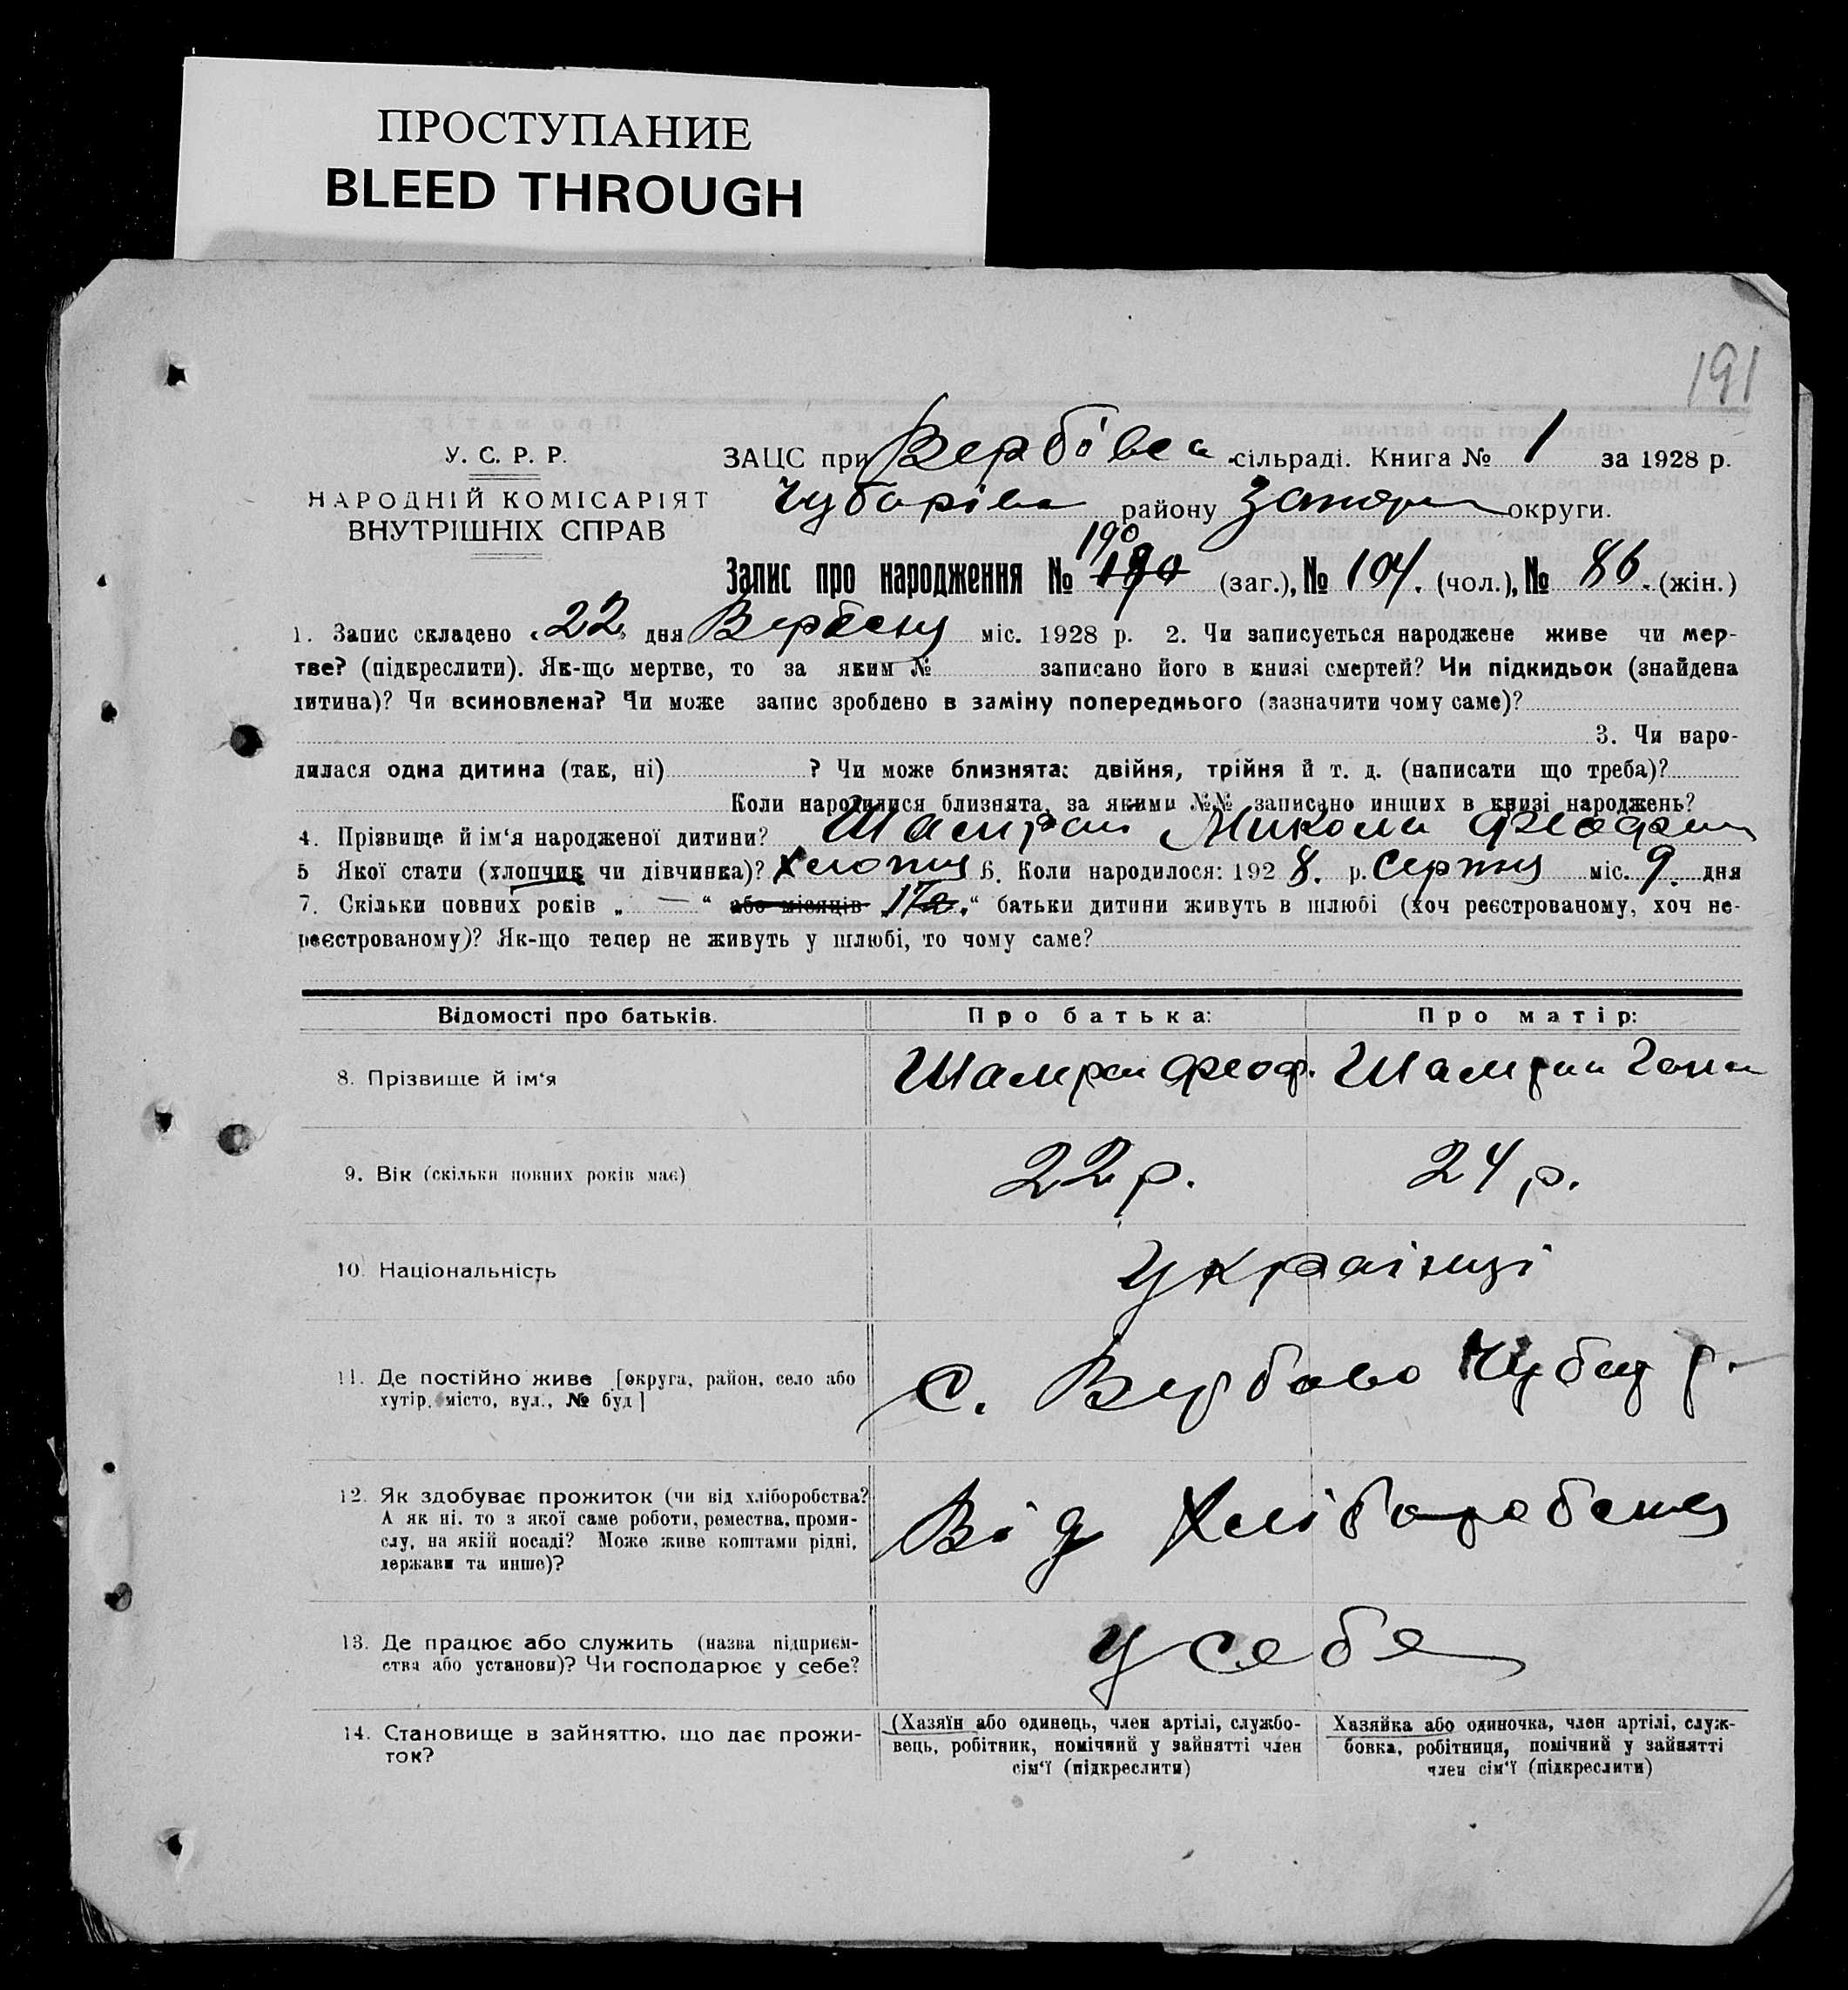 ПРОСТУПАНИЕ
BLEED THROUGH
191
У. С. Р. Р.
НАРОДНІЙ КОМІСАРІЯТ
ВНУТРІШНІХ СПРАВ
ЗАЦС при Вербівса сільраді. Книга № 1 за 1928 р.
Чубарівс району Запор округи.
190
Запис про народження № 190 (заг.), № 104. (чол.), № 86. (жін.)
1. Запис складено „22" дня Вересня міс. 1928 р. 2. Чи записується народжене живе чи мер-
тве? (підкреслити). Як-що мертве, то за яким № записано його в книзі смертей? Чи підкидьок (знайдена
дитина)? Чи всиновлена? Чи може запис зроблено в заміну попереднього (зазначити чому саме)?
3. Чи наро-
дилася одна дитина (так, ні) ? Чи може близнята: двійня, трійня й т. д. (написати що треба)?
Коли народилися близнята, за якими №№ записано инших в книзі народжень?
4. Прізвище й ім'я народженої дитини? Шамрай Микола Феодрів
5 Якої стати (хлопчик чи дівчинка)? Хлопця 6. Коли народилося: 1928. р. Серпня міс. 9. дня
7. Скільки повних років „ — " або місяців „ " батьки дитини живуть в шлюбі (хоч реєстрованому, хоч не-
реєстрованому)? Як-що тепер не живуть у шлюбі, то чому саме?
Відомості про батьків. Про батька: Про матір:
8. Прізвище й ім'я Шамрай Феод. Шамрай Ганна
9. Вік (скільки повних років має) 22 р. 24 р.
10. Національність Українці
11. Де постійно живе [округа, район, село або
хутір, місто, вул., № буд] с. Вербово Чубар р.
12. Як здобуває прожиток (чи від хліборобства?
А як ні, то з якої саме роботи, ремества, проми-
слу, на якій посаді? Може живе коштами рідні,
держави та инше)? Від Хліборобства
13. Де працює або служить (назва підприєм-
ства або установи)? Чи господарює у себе? У себе
14. Становище в зайняттю, що дає прожи-
ток?
(Хазяїн або одинець, член артілі, службо-
вець, робітник, помічний у зайнятті член
сім'ї (підкреслити)
Хазяйка або одиночка, член артілі, служ-
бовка, робітниця, помічний у зайнятті
член сім'ї (підкреслити)